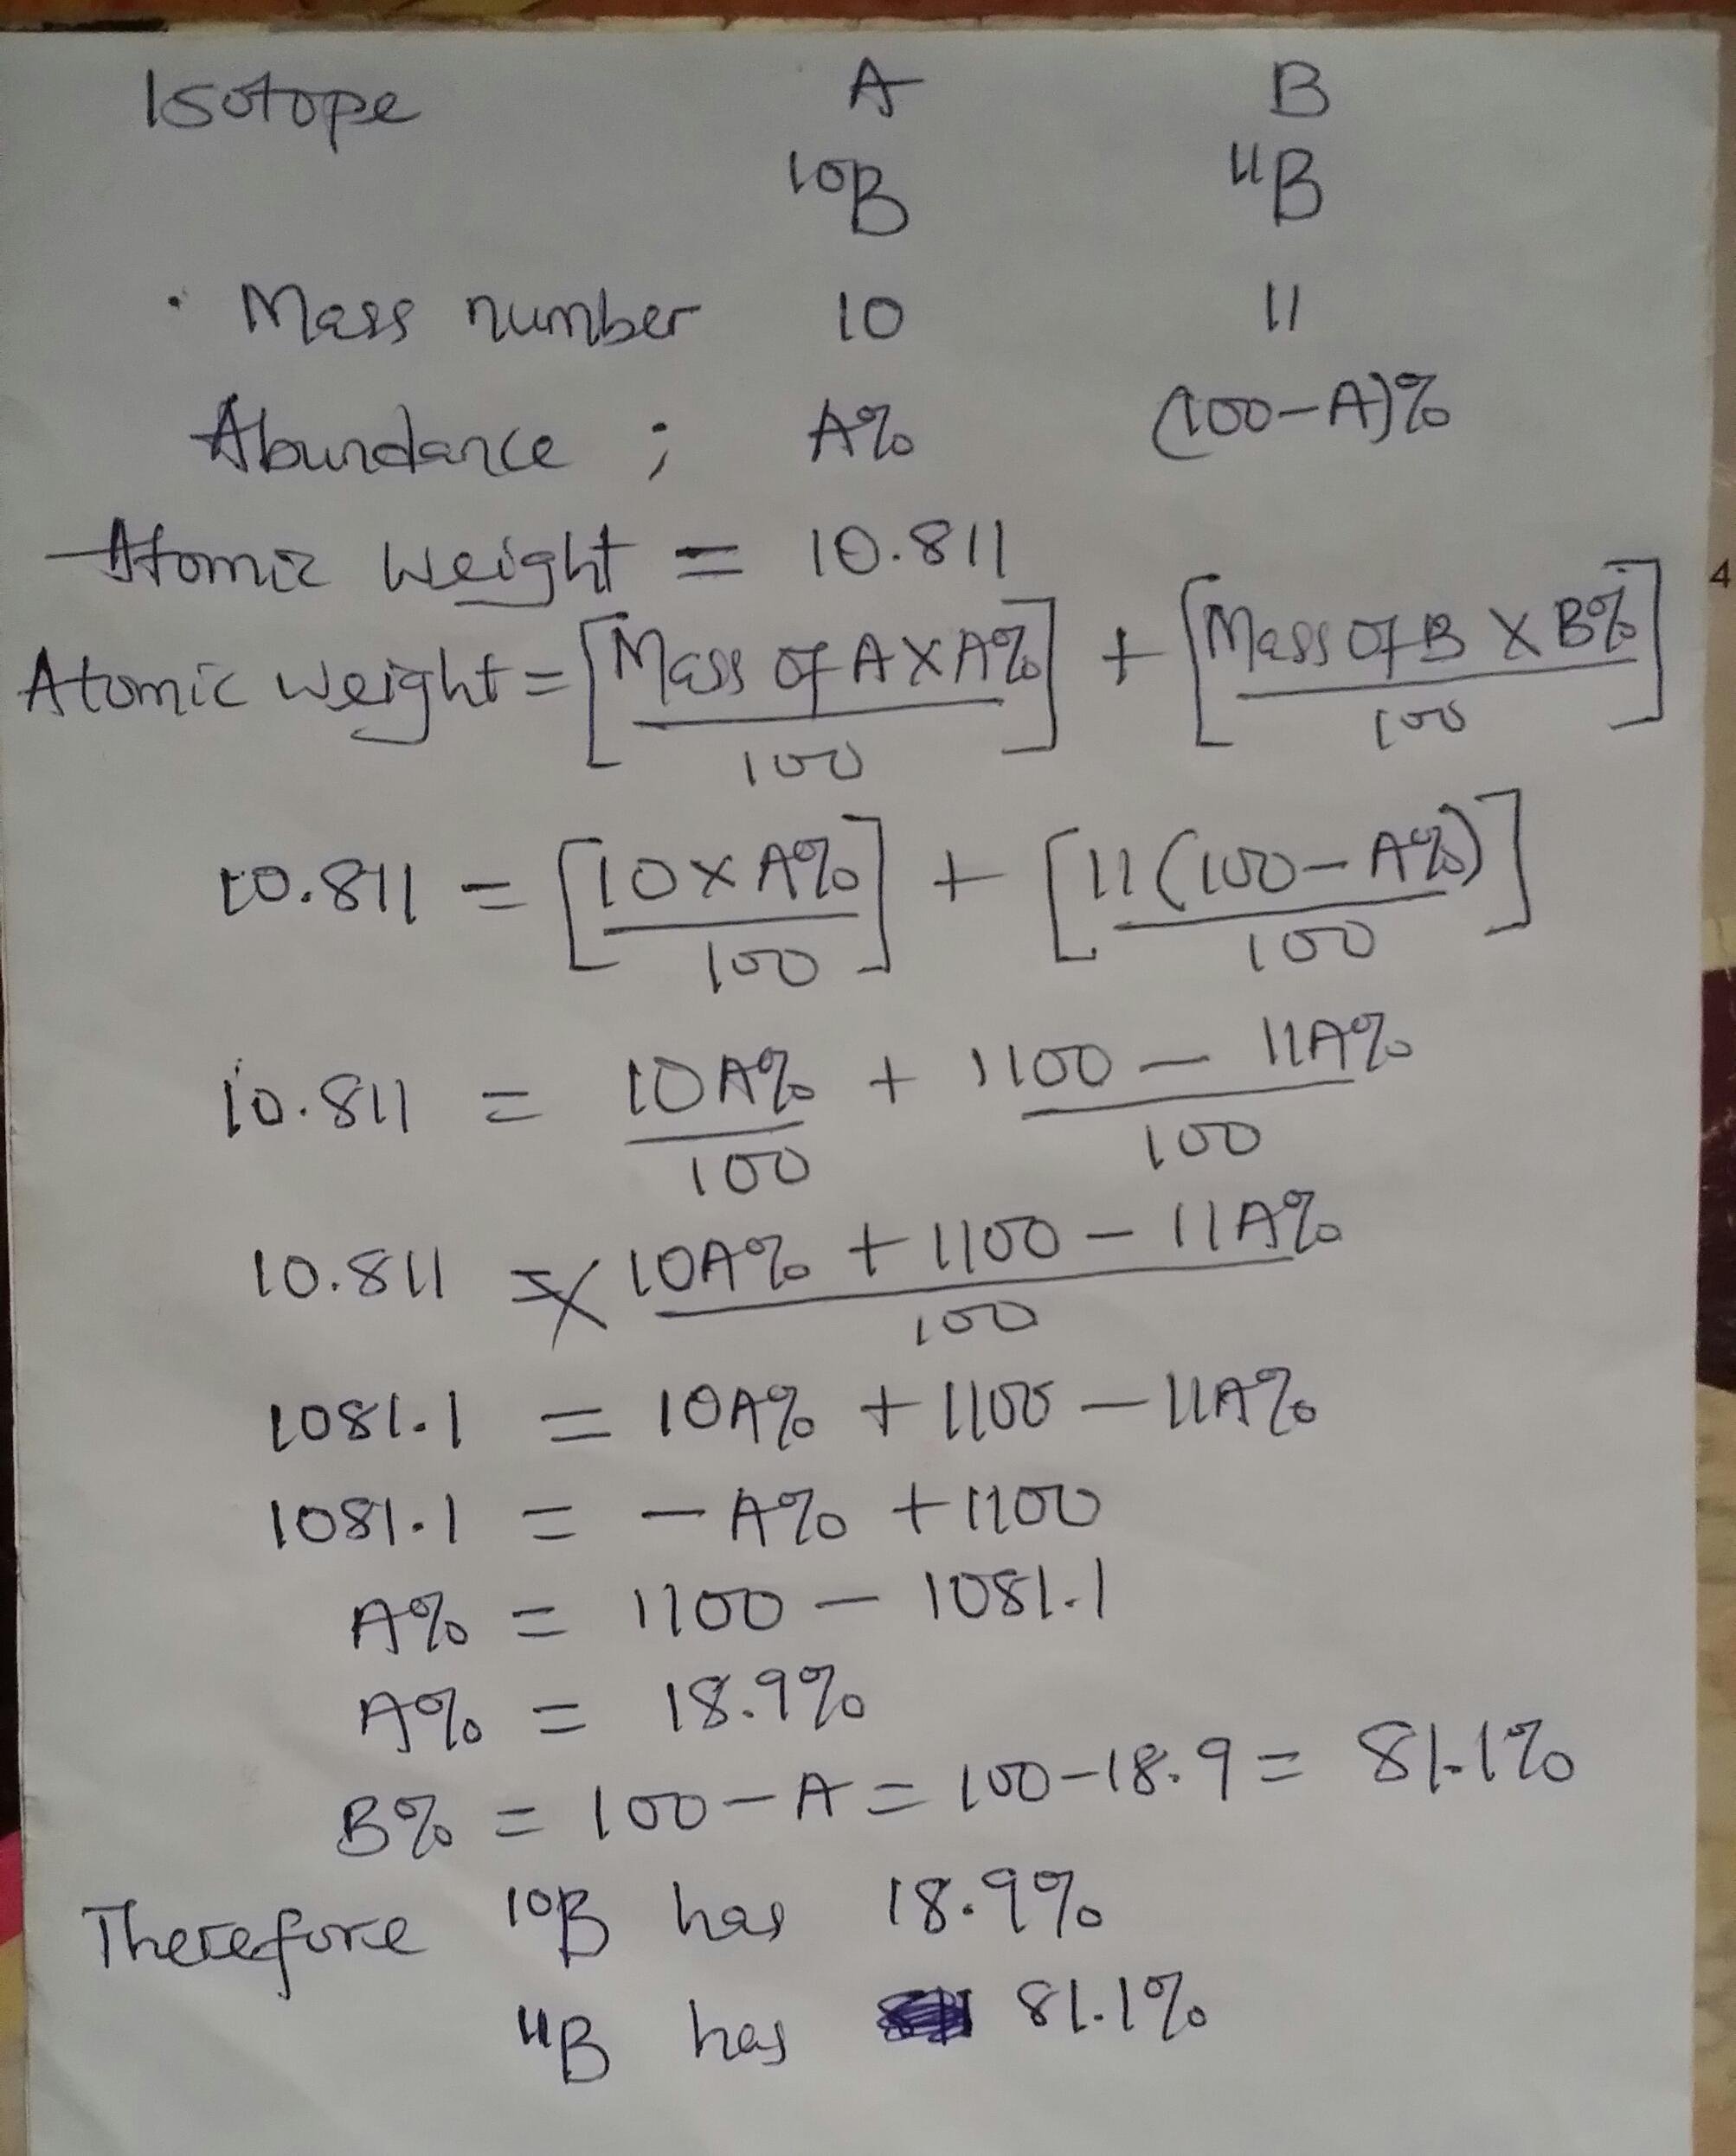 Isotope A B
¹⁰B ¹¹B
· Mass number 10 11
Abundance ; A% (100-A)%
Atomic weight = 10.811
4
Atomic weight = [Mass of A X A% / 100] + [Mass of B X B% / 100]
10.811 = [10 x A% / 100] + [11(100-A%) / 100]
10.811 = 10A% / 100 + 1100 - 11A% / 100
10.811 = 10A% + 1100 - 11A% / 100
1081.1 = 10A% + 1100 - 11A%
1081.1 = - A% + 1100
A% = 1100 - 1081.1
A% = 18.9%
B% = 100 - A = 100-18.9 = 81.1%
Therefore ¹⁰B has 18.9%
¹¹B has 81.1%